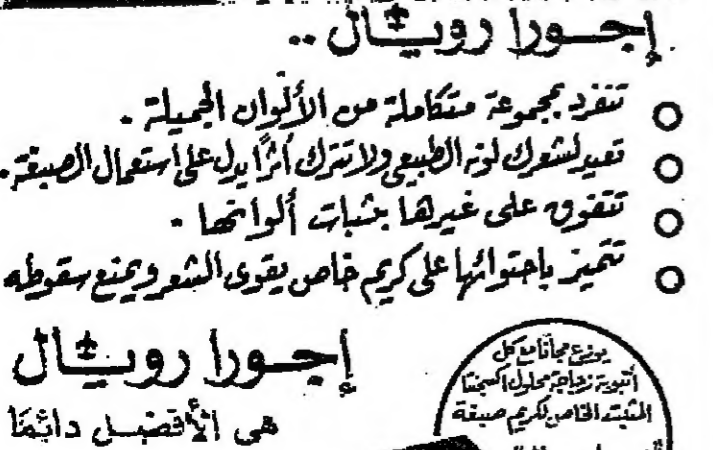 إجورا رويال ..
تنفرد بمجموعة متكاملة من الألوان الجميلة .
تعيد لشعرك لونه الطبيعى ولا تترك أثرًا يدل على استعمال الصبغة .
تتفوق على غيرها بثبات ألوانها .
تتميز باحتوائها على كريم خاص يقوى الشعر ويمنع سقوطه
إجورا رويال
هى الأفضل دائمًا
يوزع مجانًا مع كل
أنبوبة زجاجة محلول اكسجنتا
المثبته الخاص لكريم صبغة